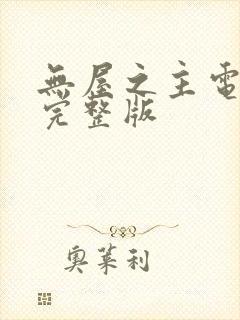 無屋之主電
完整版
奧萊利